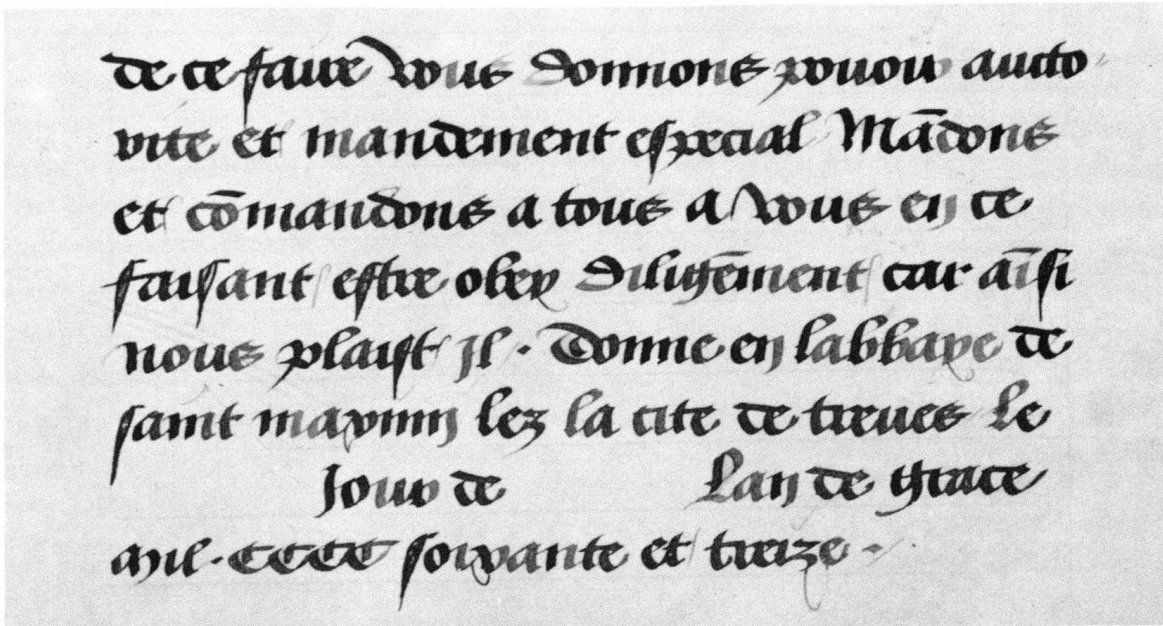 de ce faire vous donnons povoir aucto
rite et mandement especial Mādons
et cōmandons a tous a vous en ce
faisant estre obey diligēment car aīsi
nous plaist Jl · Donne en labbaye de
saint maximin lez la cite de treues Le
Jour de Lan de grace
mil · CCCC soixante et treize ·